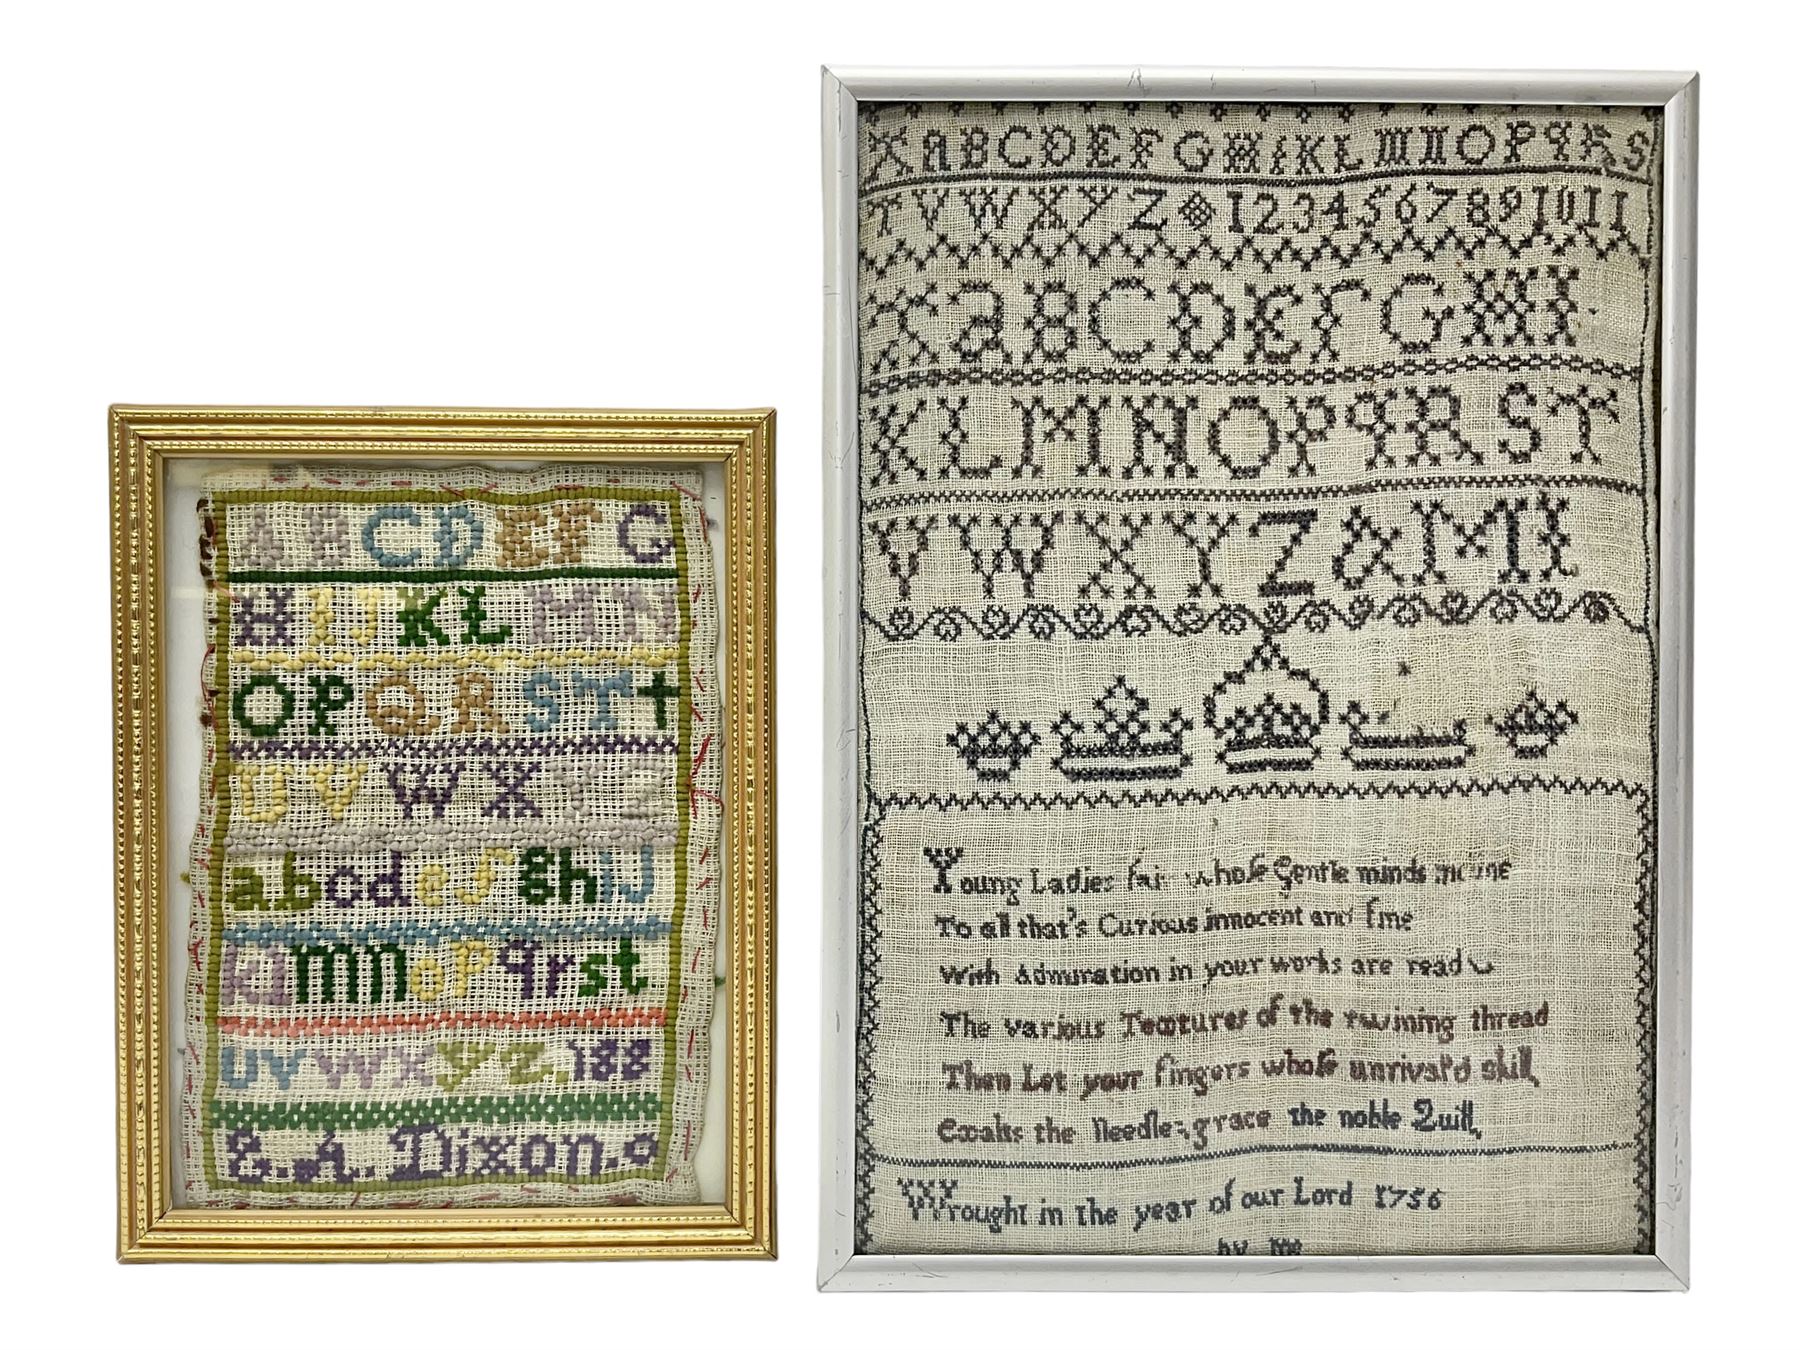 A B C D E F G
H I J K L M N
O P Q R S T
U V W X Y Z
a b c d e f g h i J
k l m n o p q r s t
u v w x y z. 188
E. A. Dixon.
A B C D E F G H I K L M N O P q R S
T V W X Y Z 1 2 3 4 5 6 7 8 9 10 11
a B C D E F G H I
K L M N O P q R S T
V W X Y Z & M I
Young Ladies fair whose Gentle minds incline
To all that's Curious innocent and fine
With Admiration in your works are read
The various Textures of the twining thread
Then Let your fingers whose unrival'd skill,
Exalts the Needle, grace the noble Quill,
Wrought in the year of our Lord 1756
by Me